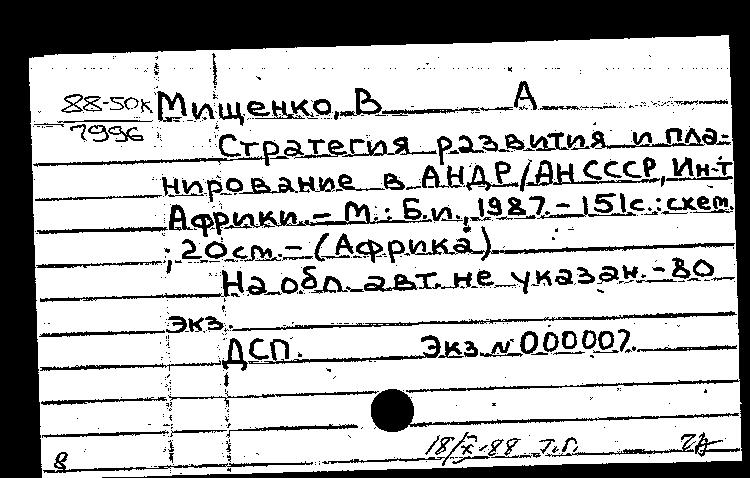 88-50к Мищенко, В А
7996
Стратегия развития и пла-
нирование в АНДР/АН СССР, Ин-т
Африки. – М.: Б.и., 1987. – 151с.: схем.
; 20см. – (Африка)
На обл. авт. не указан. – 80
экз.
ДСП. Экз. № 000007.
18/X-88 Т.П.
8